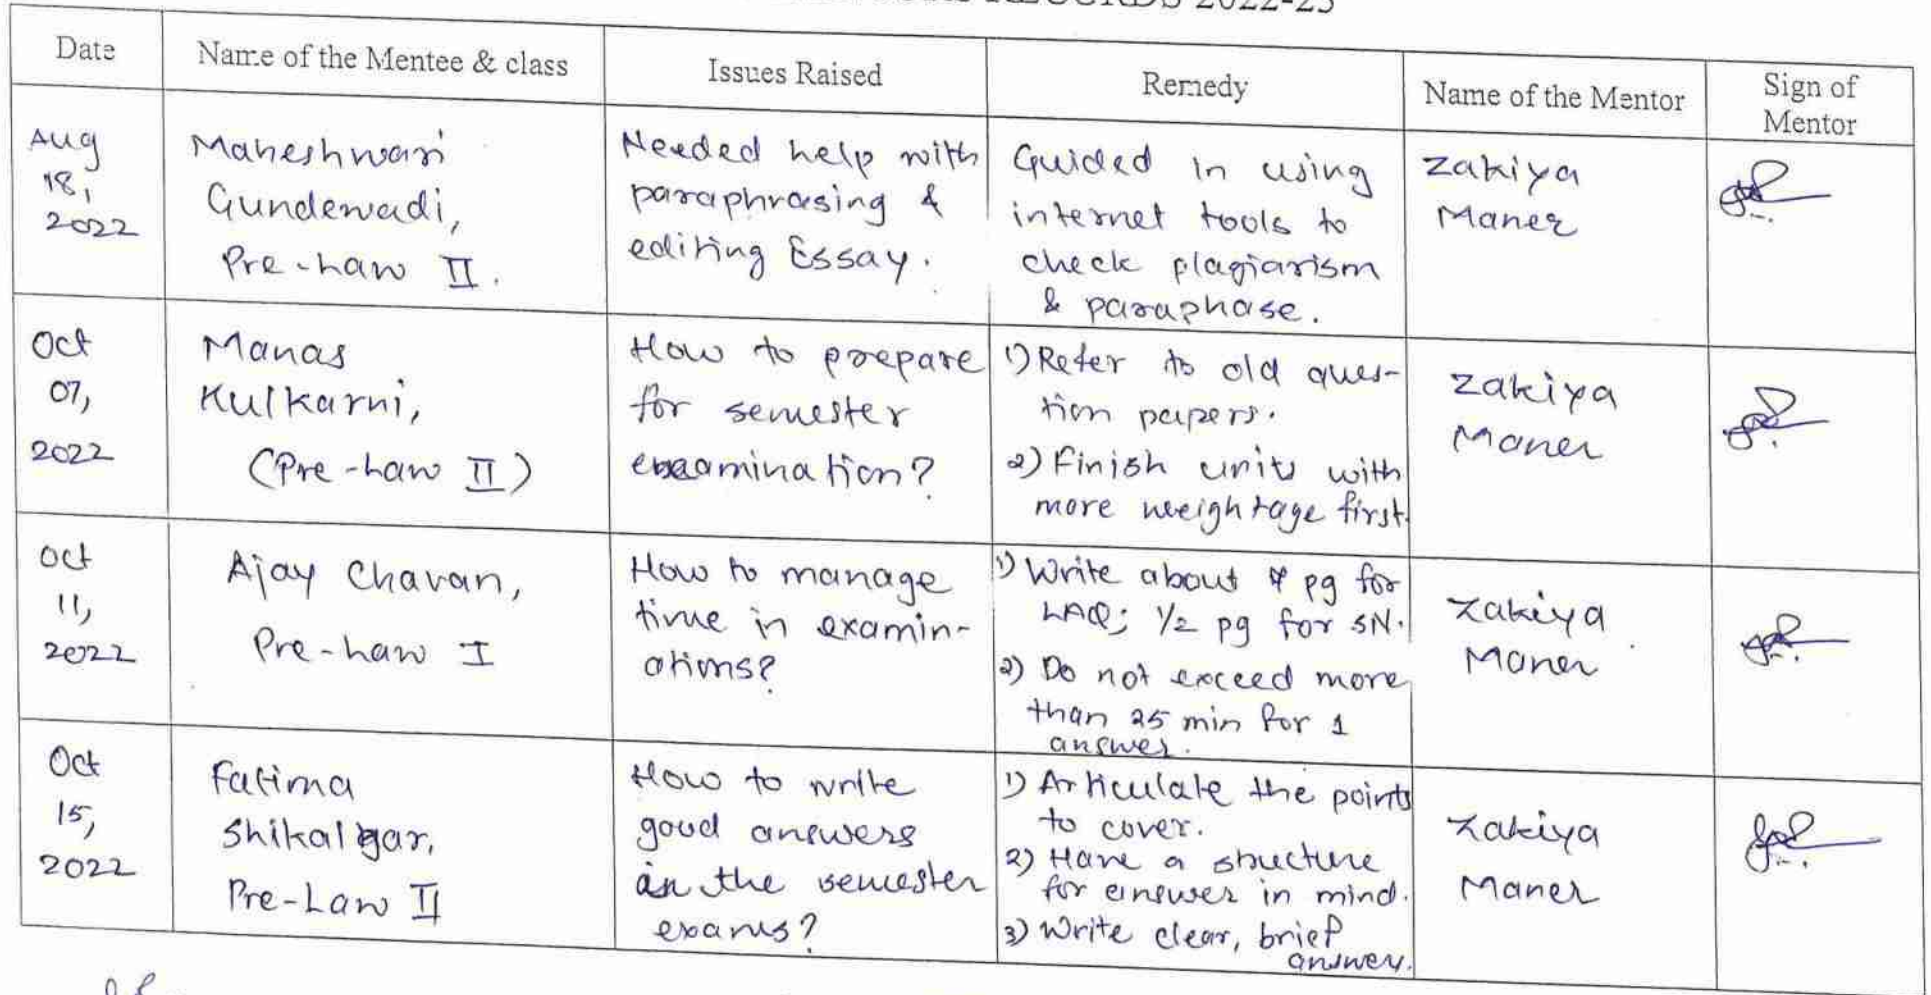 RECORDS 2022-23
Date
Name of the Mentee & class
Issues Raised
Remedy
Name of the Mentor
Sign of
Mentor
Aug
18,
2022
Maheshwari
Gundewadi,
Pre-Law II.
Needed help with
paraphrasing &
editing Essay.
Guided in using
internet tools to
check plagiarism
& paraphase.
Zakiya
Maner
Oct
07,
2022
Manas
Kulkarni,
(Pre-Law II)
How to prepare
for semester
examination?
1) Refer to old ques-
tion papers.
2) Finish units with
more weightage first.
Zakiya
Maner
Oct
11,
2022
Ajay Chavan,
Pre-Law I
How to manage
time in examin-
ations?
1) Write about 4 pg for
LAQ; 1/2 pg for SN.
2) Do not exceed more
than 25 min for 1
answer.
Zakiya
Maner
Oct
15,
2022
Fatima
Shikalgar,
Pre-Law II
How to write
good answers
in the semester
exams?
1) Articulate the points
to cover.
2) Have a structure
for answer in mind.
3) Write clear, brief
answer.
Zakiya
Maner